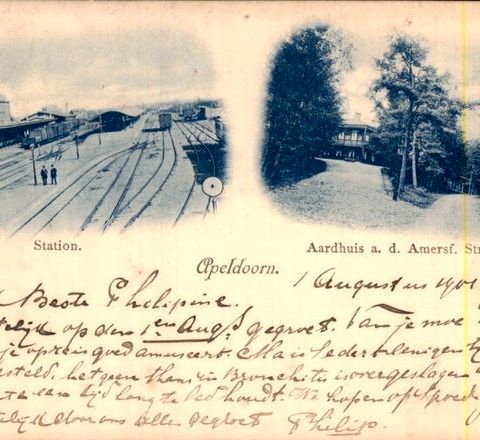 Station.
Aardhuis a. d. Amersf. Str
Apeldoorn.
1 Augustus 1901
Beste Philipine.
op den 1en Augs gegroet. Van je moe
je op reis goed amuseert. Ma is sedert
hetgeen thans in Bronchitis is overgeslagen
tijd lang te bed houdt. We hopen op spoed
door ons allen gegroet Philip.